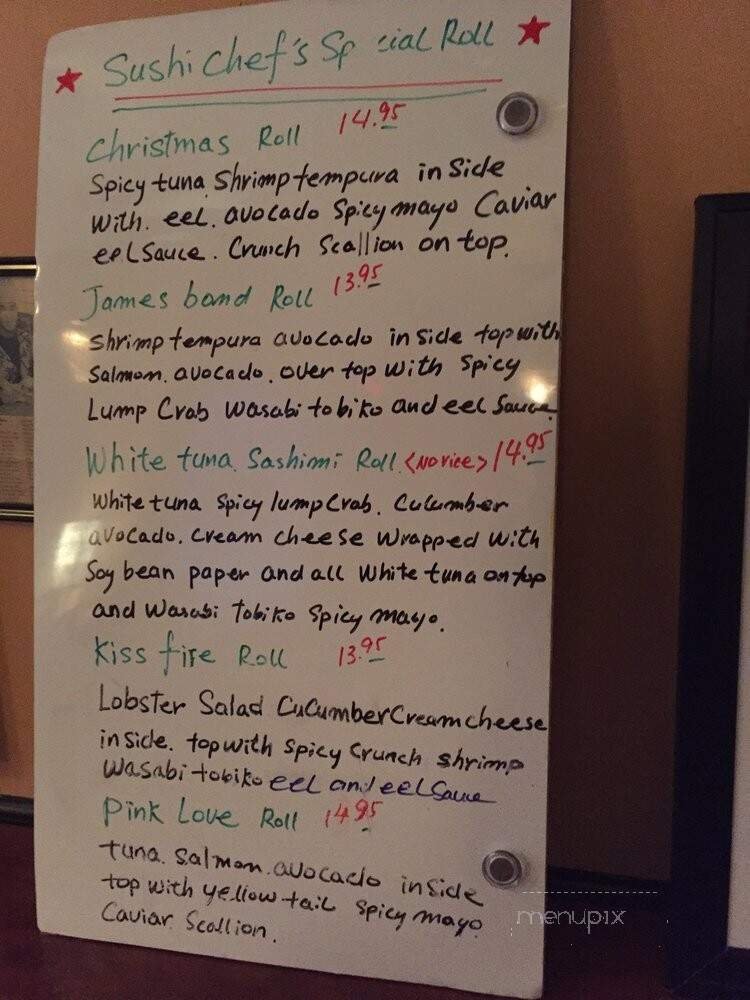 Sushi Chef's Sp cial Roll
Christmas Roll 14.95
Spicy tuna Shrimp tempura inside
with. eel. avocado Spicy mayo Caviar
eel Sauce. Crunch Scallion on top.
James band Roll 13.95
Shrimp tempura avocado inside top with
Salmon. avocado. over top with Spicy
Lump Crab Wasabi tobiko and eel Sauce
White tuna Sashimi Roll <No rice> 14.95
White tuna Spicy lump Crab. Cucumber
avocado. Cream cheese Wrapped with
Soy bean paper and all White tuna on top
and Wasabi Tobiko Spicy mayo.
Kiss fire Roll 13.95
Lobster Salad CuCumber Cream cheese
inside. top with Spicy Crunch Shrimp
Wasabi tobiko eel and eel Sauce
Pink Love Roll 14.95
tuna. Salmon. avocado inside
top with yellow tail Spicy mayo
Caviar Scallion.
menupix